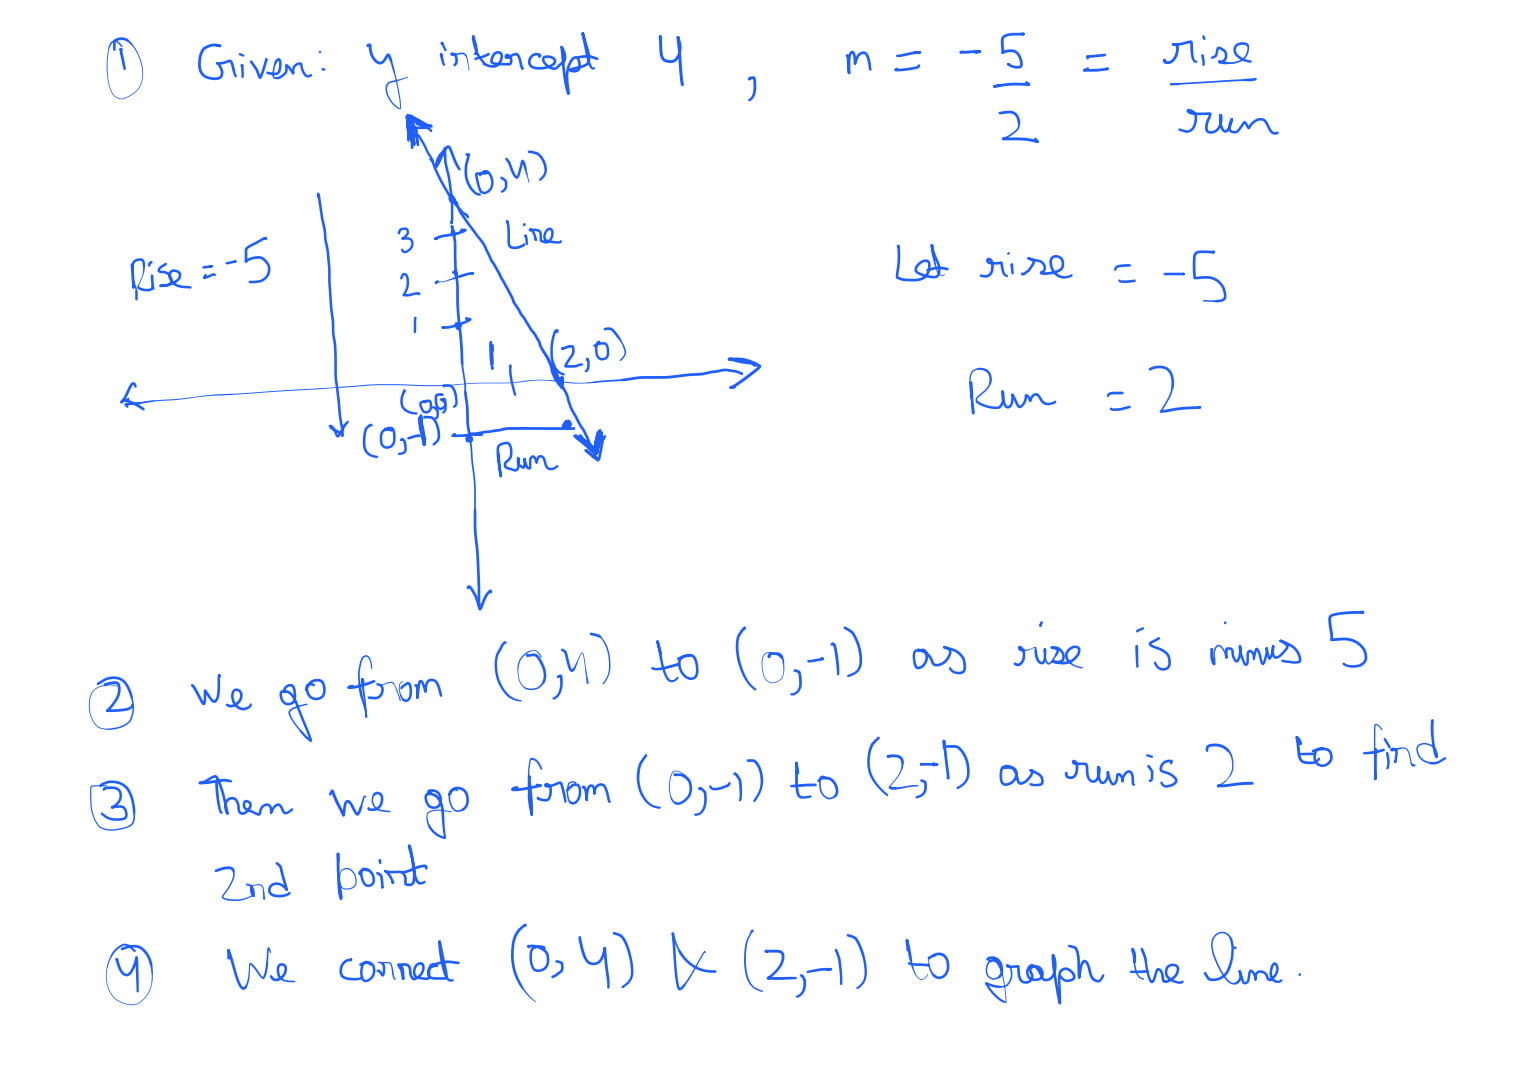 ① Given: y intercept 4 , m = -5/2 = rise/run
(0,4)
3 Line
Rise = -5
2
1
(2,0)
(0,0)
(0,-1)
Run
Let rise = -5
Run = 2
② We go from (0,4) to (0,-1) as rise is minus 5
③ Then we go from (0,-1) to (2,-1) as run is 2 to find
2nd point
④ We connect (0,4) & (2,-1) to graph the line.